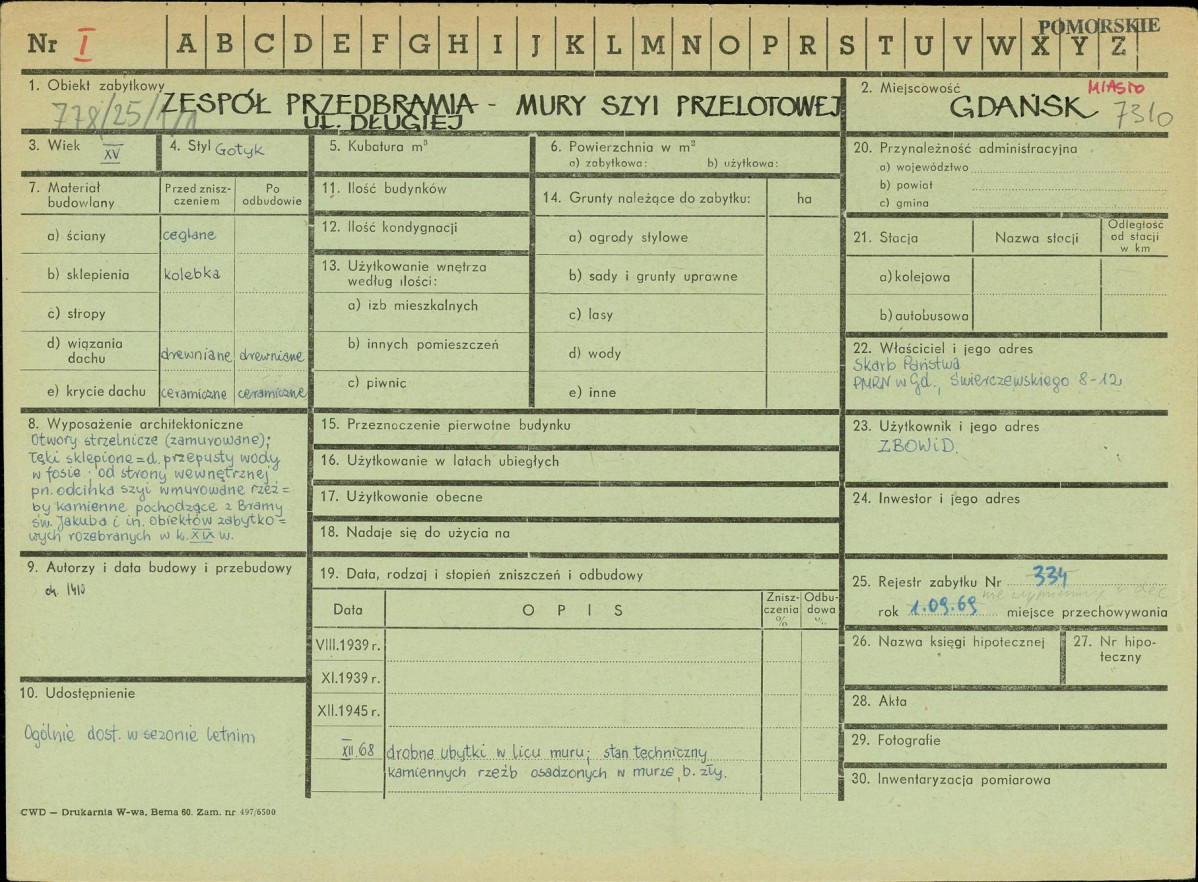 Nr I A B C D E F G H I J K L M N O P R S T U V W X Y Z
POMORSKIE
1. Obiekt zabytkowy
778/25/1/1
ZESPÓŁ PRZEDBRAMIA - MURY SZYI PRZELOTOWEJ
UL. DŁUGIEJ
2. Miejscowość
MIASTO
GDAŃSK 7310
3. Wiek XV
4. Styl Gotyk
5. Kubatura m³
6. Powierzchnia w m²
a) zabytkowa: b) użytkowa:
7. Materiał budowlany
Przed zniszczeniem
Po odbudowie
a) ściany ceglane
b) sklepienia kolebka
c) stropy
d) wiązania dachu drewniane drewniane
e) krycie dachu ceramiczne ceramiczne
8. Wyposażenie architektoniczne
Otwory strzelnicze (zamurowane);
łęki sklepione = d. przepusty wody
w fosie; od strony wewnętrznej
pn. odcinka szyi wmurowane rzeź=
by kamienne pochodzące z Bramy
św. Jakuba i in. obiektów zabytko=
wych rozebranych w k. XIX w.
9. Autorzy i data budowy i przebudowy
ok. 1410
10. Udostępnienie
Ogólnie dost. w sezonie letnim
11. Ilość budynków
12. Ilość kondygnacji
13. Użytkowanie wnętrza
według ilości:
a) izb mieszkalnych
b) innych pomieszczeń
c) piwnic
14. Grunty należące do zabytku: ha
a) ogrody stylowe
b) sady i grunty uprawne
c) lasy
d) wody
e) inne
15. Przeznoczenie pierwotne budynku
16. Użytkowanie w latach ubiegłych
17. Użytkowanie obecne
18. Nadaje się do użycia na
19. Data, rodzaj i stopień zniszczeń i odbudowy
Data OPIS Zniszczenia % Odbudowa %
VIII.1939 r.
XI.1939 r.
XII.1945 r.
XII.68 drobne ubytki w licu muru; stan techniczny
kamiennych rzeźb osadzonych w murze, b. zły.
20. Przynależność administracyjna
a) województwo
b) powiat
c) gmina
21. Stacja Nazwa stacji Odległość od stacji w km
a) kolejowa
b) autobusowa
22. Właściciel i jego adres
Skarb Państwa
PMRN w Gd., Świerczewskiego 8-12
23. Użytkownik i jego adres
ZBOWiD.
24. Inwestor i jego adres
25. Rejestr zabytku Nr 334
rok 1.09.69 miejsce przechowywania
26. Nazwa księgi hipotecznej
27. Nr hipoteczny
28. Akta
29. Fotografie
30. Inwentaryzacja pomiarowa
CWD — Drukarnia W-wa, Bema 60. Zam. nr 497/6500